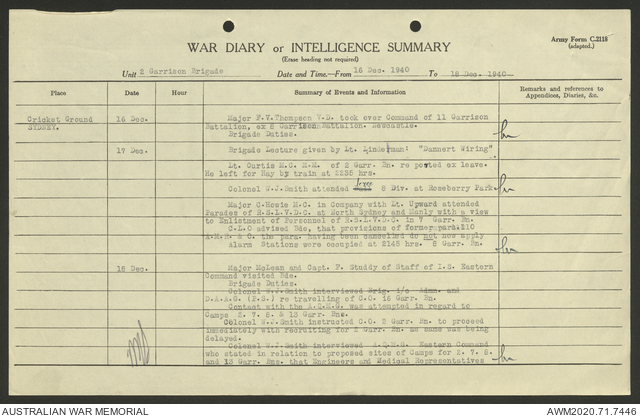 Army Form C.2118
(adapted.)
WAR DIARY or INTELLIGENCE SUMMARY
(Erase heading not required)
Unit 2 Garrison Brigade Date and Time.—From 16 Dec. 1940 To 18 Dec. 1940
Place Date Hour Summary of Events and Information Remarks and references to
Appendices, Diaries, &c.
Cricket Ground 16 Dec. Major F.V.Thompson V.D. took over Command of 11 Garrison
SYDNEY. Battalion, ex 8 Garrison Battalion. Newcastle.
Brigade Duties.
17 Dec. Brigade Lecture given by Lt. Linderman: "Dannert Wiring"
Lt. Curtis M.C. M.M. of 2 Garr. Bn. re ported ex leave.
He left for Hay by train at 2235 hrs.
Colonel W.J.Smith attended 8 Div. at Roseberry Park
Major C.Howie M.C. in Company with Lt. Upward attended
Parades of R.S.L.V.D.C. at North Sydney and Manly with a view
to Enlistment of Personnel of R.S.L.V.D.C. in 7 Garr. Bn.
C.L.O advised Bde, that provisions of former para. 110
A.M.R. & O. the para. having been cancelled do not now apply
Alarm Stations were occupied at 2145 hrs. 8 Garr. Bn.
18 Dec. Major McLean and Capt. F. Studdy of Staff of I.S. Eastern
Command visited Bde.
Brigade Duties.
Colonel W.J.Smith interviewed Brig. i/c Admn. and
D.A.A.G. (P.S.) re travelling of C.O. 16 Garr. Bn.
Contact with the A.Q.M.G. was attempted in regard to
Camps 2. 7. 8. & 13 Garr. Bns.
Colonel W.J.Smith instructed C.O. 2 Garr. Bn. to proceed
immediately with recruiting for 2 Garr. Bn. as same was being
delayed.
Colonel W.J.Smith interviewed A.Q.M.G. Eastern Command
who stated in relation to proposed sites of Camps for 2. 7. 8.
and 13 Garr. Bns. that Engineers and Medical Representatives
AUSTRALIAN WAR MEMORIAL AWM2020.71.7446